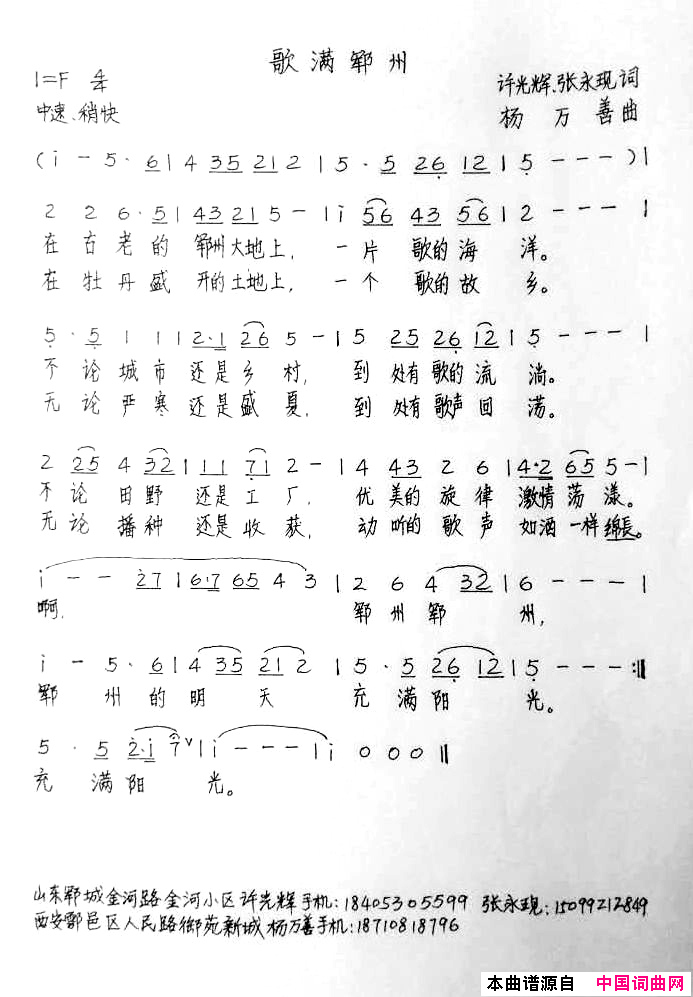 歌满郓州
1=F 4/4
许光辉、张永现词
中速、稍快
杨万善曲
(i - 5· 6 | 4 35 21 2 | 5 · 5 26 12 | 5 - - - ) |
2 2 6· 5 | 43 21 5 - | i 56 43 56 | 2 - - - |
在古老的 郓州大地上, 一片歌的海洋。
在牡丹盛开的土地上, 一个歌的故乡。
5· 5 1 1 | 2·1 26 5 - | 5 25 26 12 | 5 - - - |
不论城市还是乡村, 到处有歌的流淌。
无论严寒还是盛夏, 到处有歌声回荡。
2 25 4 32 | 11 71 2 - | 4 43 2 6 | 4·2 65 5 - |
不论田野还是工厂, 优美的旋律激情荡漾。
无论播种还是收获, 动听的歌声如酒一样绵長。
i - - 27 | 6·7 65 4 3 | 2 6 4 32 | 6 - - - |
啊, 郓州郓州,
i - 5· 6 | 4 35 21 2 | 5· 5 26 12 | 5 - - - :||
郓州的明天充满阳光。
5· 5 2·i 7 v | i - - - | i 0 0 0 ||
充满阳光。
山东郓城金河路金河小区许光辉手机:18405305599 张永现:15099212849
西安鄠邑区人民路御苑新城杨万善手机:18710818796
本曲谱源自 中国词曲网